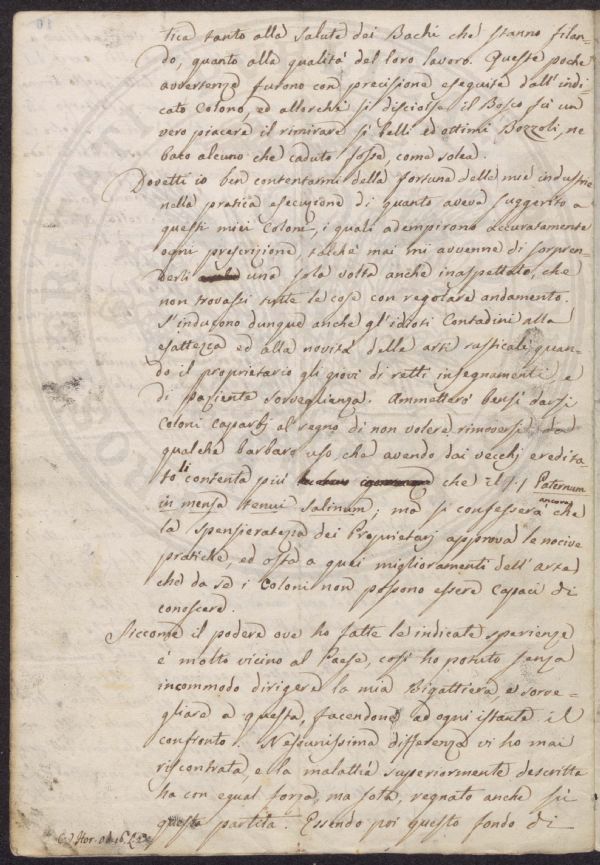 tica tanto alla salute dei Bachi che stanno filan-
do, quanto alla qualità del loro lavoro. Queste poche
avvertenze furono con precisione eseguite dall'indi=
cato Colono, ed allorchè si disciolse il Bosco fù un
vero piacere il rimirare sì belli ed ottimi Bozzoli, ne
baco alcuno che caduto fosse, come solea.
Dovetti io ben contentarmi della fortuna delle mie industrie
nella pratica esecuzione di quanto aveva suggerito a
questi miei Coloni, i quali adempirono accuratamente
ogni prescrizione, talchè mai mi avvenne di sorpren-
derli una sola volta anche inaspettato, che
non trovassi tutte le cose con regolare andamento.
S'inducono dunque anche gl'idioti Contadini alla
esattezza ed alla novità delle arti rusticali, quan-
do il proprietario gli giovi di retti insegnamenti e
di paziente sorveglianza. Ammetterò bensì darsi
Coloni caparbj al segno di non volere rimoversi da
qualche barbaro uso, che avendo dai vecchj eredita
to li contenta più che il Paternum
in mensa tenui salinum; ma si confesserà ancora che
la spensieratezza dei Proprietarj approva le nocive
pratiche, ed osta a quei miglioramenti dell'Arte
che da se i Coloni non possono essere capaci di
conoscere.
Siccome il podere ove ho fatte le indicate sperienze
è molto vicino al Paese, così ho potuto senza
incommodo dirigere la mia Bigattiera, e sorve-
gliare a questa, facendone ad ogni istante il
confronto. Nessunissima differenza vi ho mai
riscontrata, e la malattia superiormente descritta
ha con egual forza, ma sola, regnato anche sù
questa partita. Essendo poi questo fondo di
Hor. Od. 16. L. 2